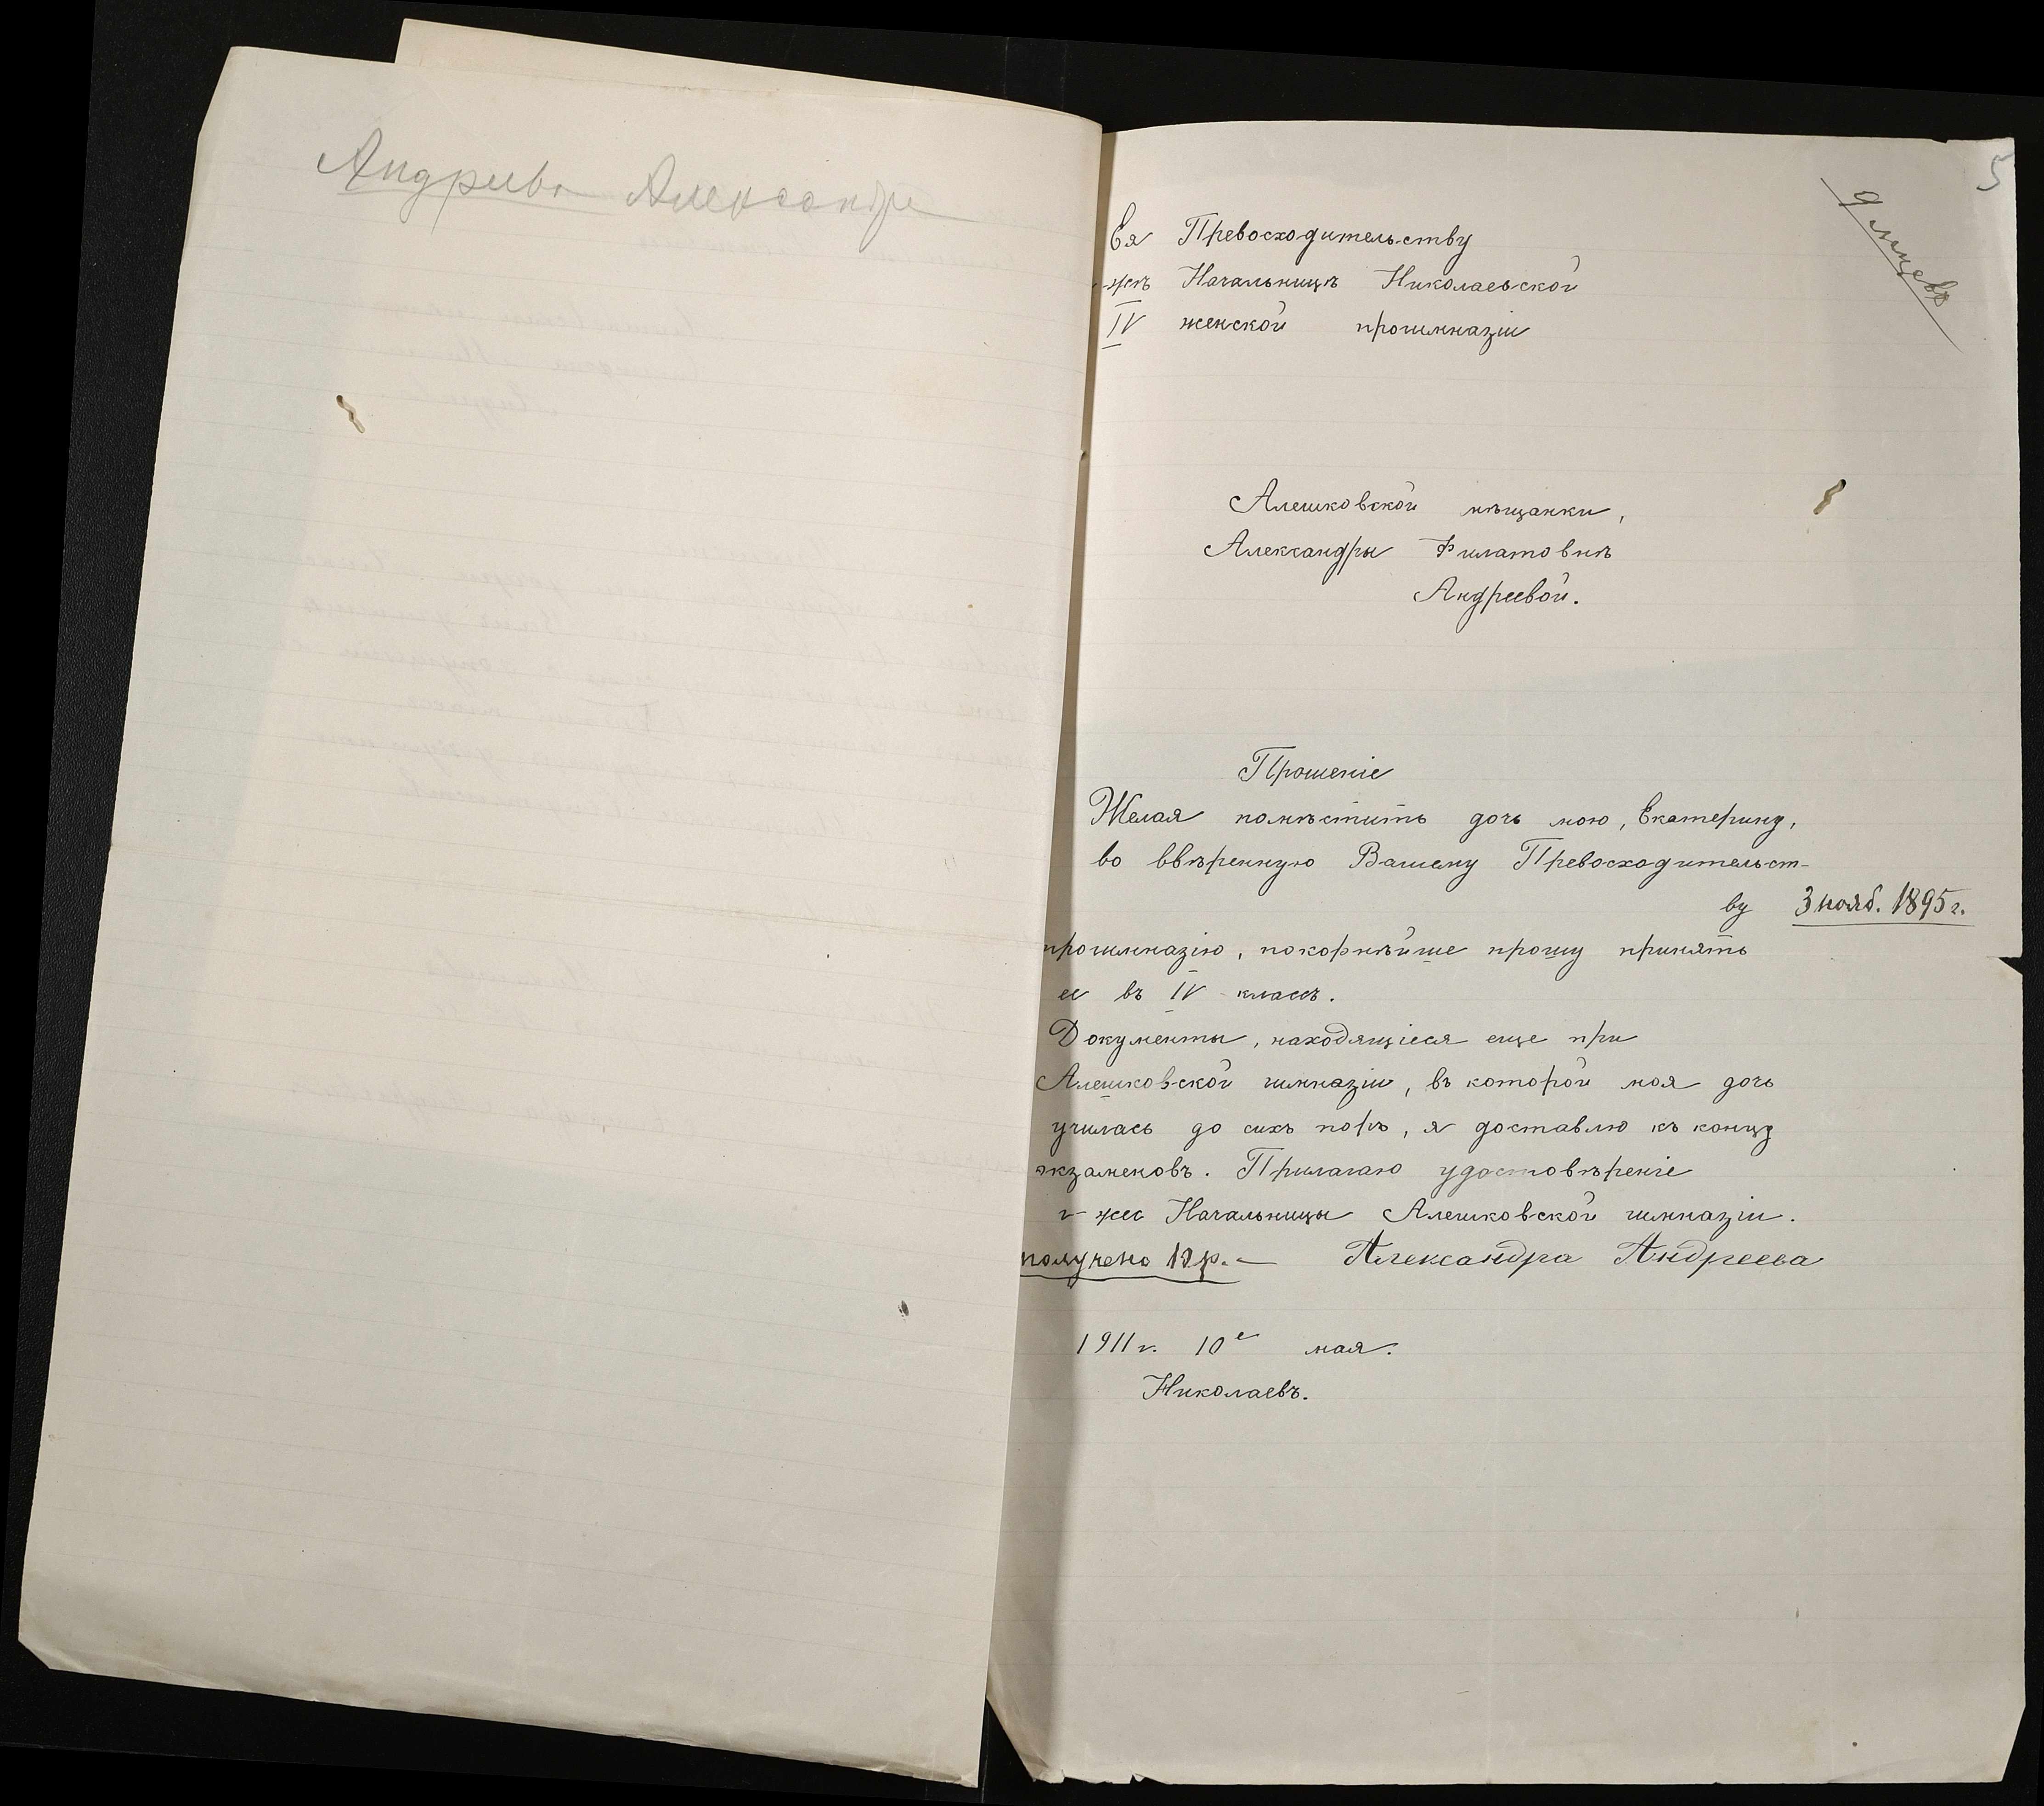 Андреева Александра
5
Ея Превосходительству
г-жѣ Начальницѣ Николаевской
IV женской прогимназіи
Алешковской мѣщанки,
Александры Филатовнѣ
Андреевой.
Прошеніе
Желая помѣстить дочь мою, Екатерину,
во ввѣренную Вашему Превосходительст-
ву 3 нояб. 1895 г.
прогимназію, покорнѣйше прошу принять
ее въ IV классъ.
Документы, находящіеся еще при
Алешковской гимназіи, въ которой моя дочь
училась до сихъ поръ, я доставлю къ концу
экзаменовъ. Прилагаю удостовѣреніе
г-жи Начальницы Алешковской гимназіи.
получено 10 р. — Александра Андреева
1911 г. 10е мая.
Николаевъ.